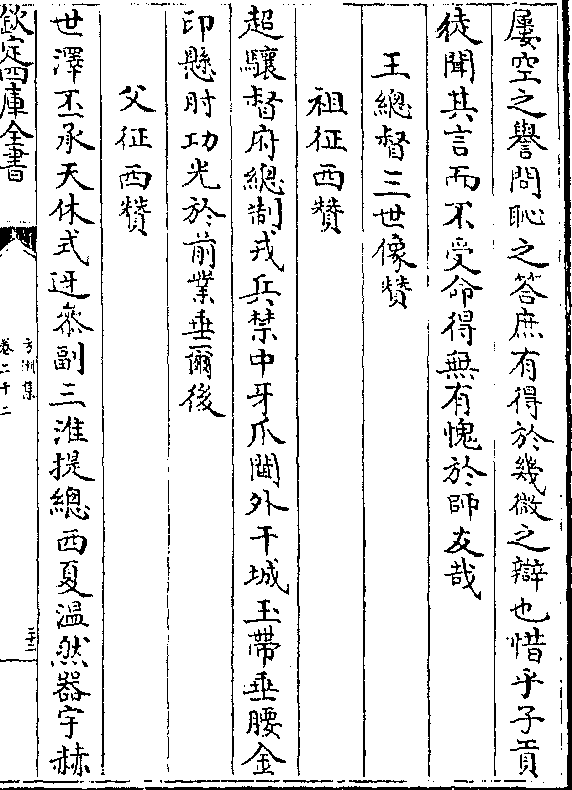 屢空之譽問恥之答庶有得於幾微之辯也惜乎子貢
徒聞其言而不受命得無有愧於師友哉
王總督三世像贊
祖征西贊
超驤督府總制戎兵禁中牙爪閫外干城玉帶垂腰金
印懸肘功光於前業垂爾後
父征西贊
世澤丕承天休式迓叅副三淮提總西夏温然器宇赫
欽定四庫全書
方洲集
卷二十二